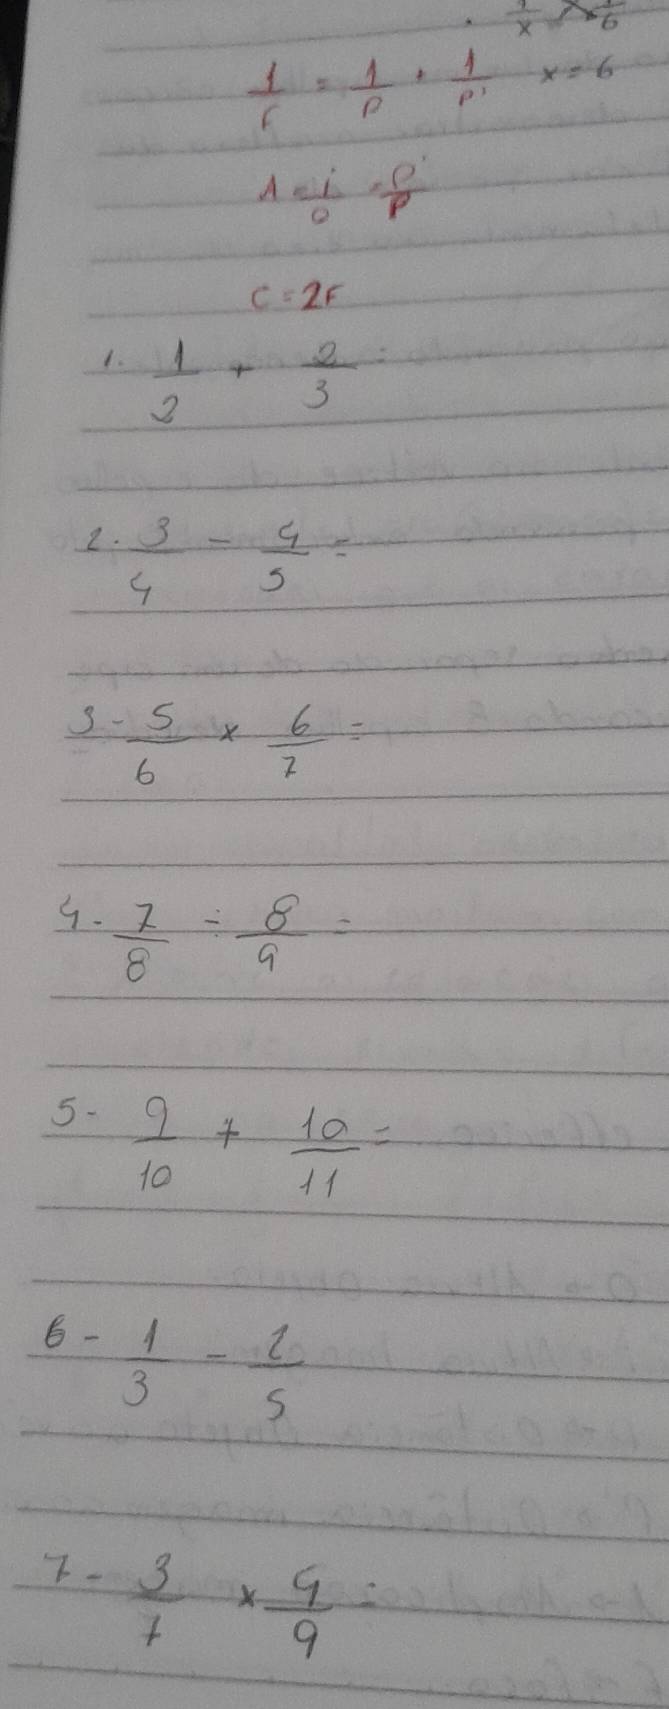 1/x 1/6
1/F = 1/P + 1/P' x = 6
A = i/o = P'/P
C = 2F
1. 1/2 + 2/3 =
2. 3/4 - 4/5 =
3 - 5/6 × 6/7 =
4 - 7/8 ÷ 8/9 =
5 - 9/10 + 10/11 =
6 - 1/3 - 2/5
7 - 3/7 × 4/9 =